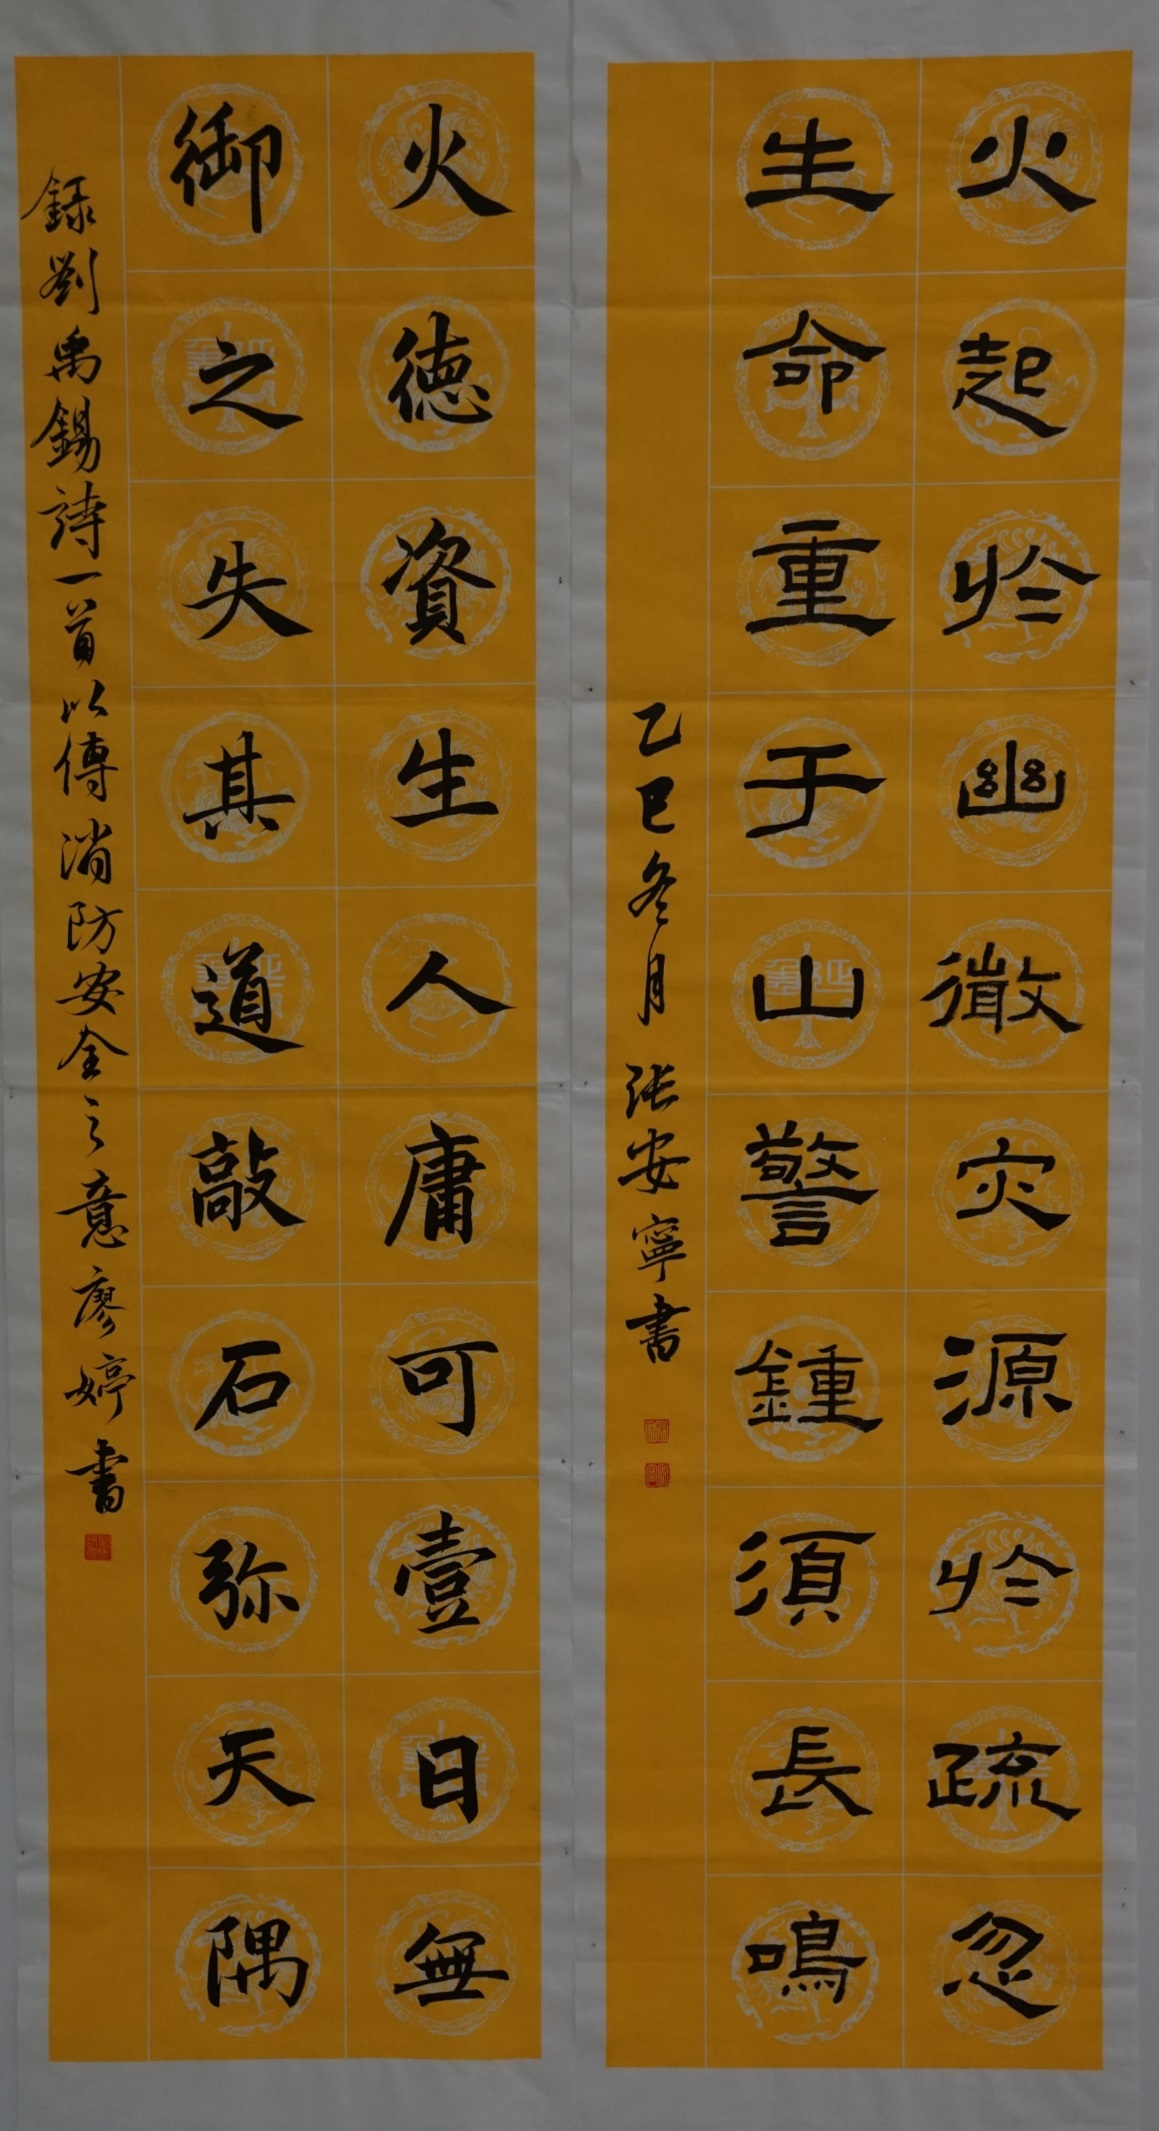 火起於幽微灾源於疏忽
生命重于山警鍾須長鳴
乙巳冬月 张安寧書
火德資生人庸可壹日無
御之失其道敲石弥天隅
録劉禹錫詩一首以傳消防安全之意廖婷書